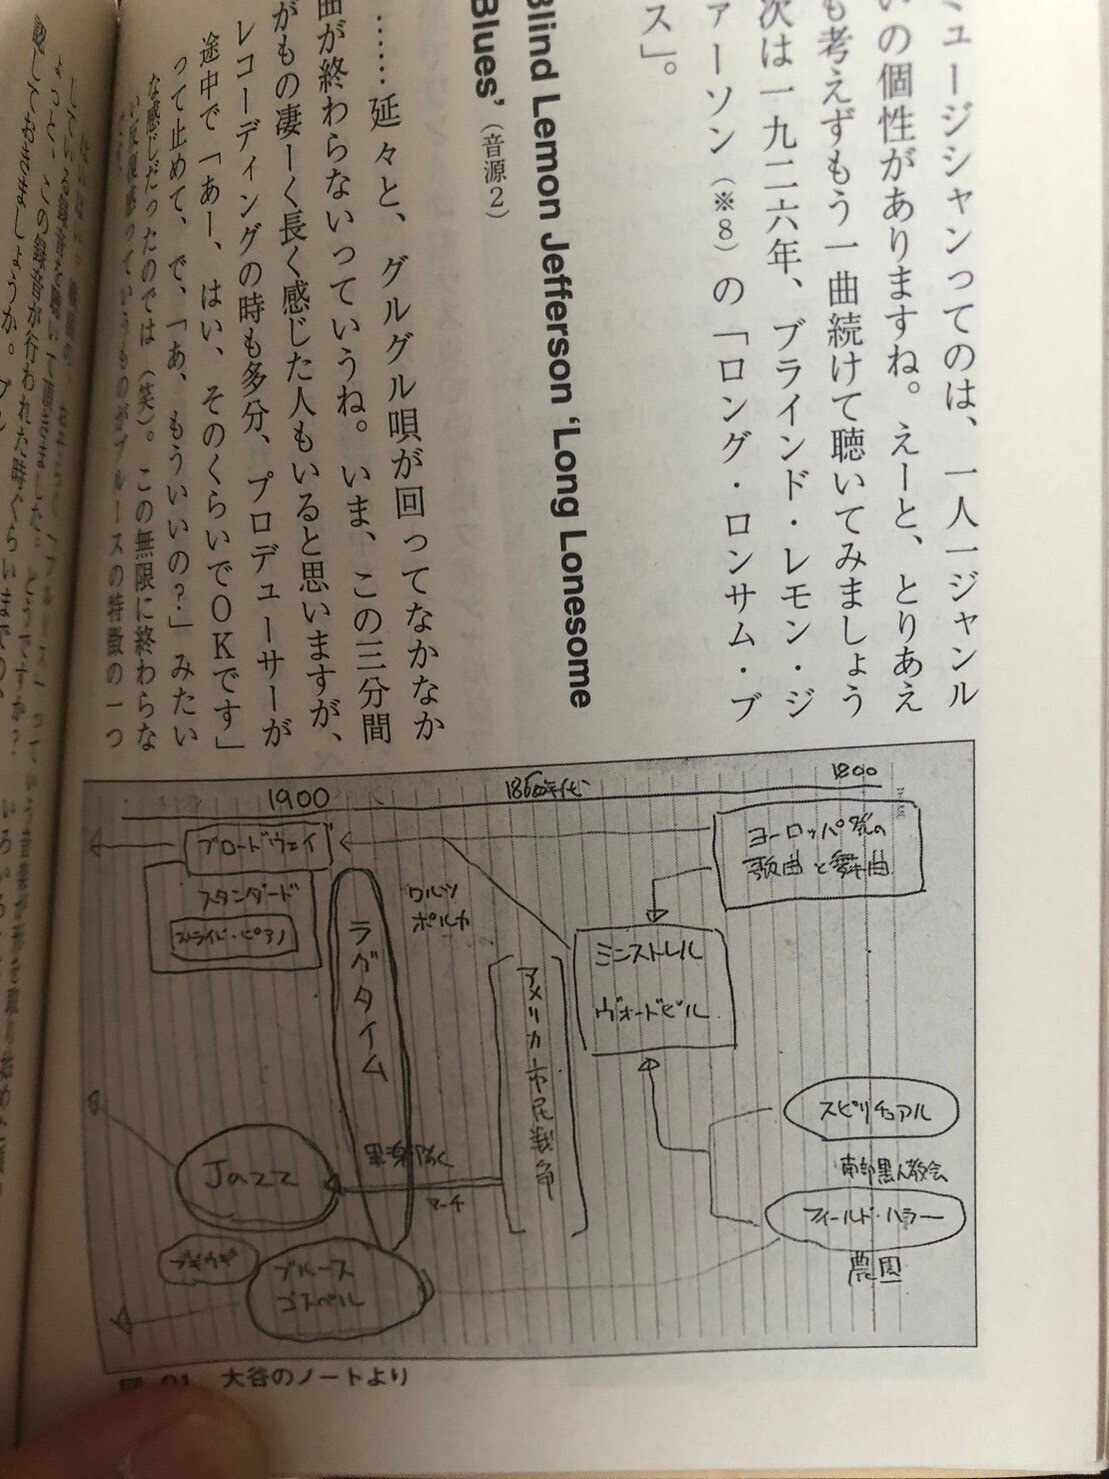 ミュージシャンってのは、一人一ジャンル
いの個性がありますね。えーと、とりあえ
も考えずもう一曲続けて聴いてみましょう
次は一九二六年、ブラインド・レモン・ジ
ァーソン（※8）の「ロング・ロンサム・ブ
ス」。
Blind Lemon Jefferson ‘Long Lonesome
Blues’（音源2）
……延々と、グルグル唄が回ってなかなか
曲が終わらないっていうね。いま、この三分間
がもの凄ーく長く感じた人もいると思いますが、
レコーディングの時も多分、プロデューサーが
途中で「あー、はい、そのくらいでOKです」
って止めて、で、「あ、もういいの？」みたい
な感じだったのでは（笑）。この無限に終わらな
い反復感っていうものがブルースの特徴の一つ
1800
1860年代
1900
ヨーロッパ発の
歌曲と舞曲
ブロードウェイ
スタンダード
ストライド・ピアノ
ワルツ
ポルカ
ラグタイム
ミンストレル
ヴォードビル
アメリカ市民戦争
スピリチュアル
南部黒人教会
フィールド・ハラー
農園
マーチ
Jazz
ブギウギ
ブルース
ゴスペル
大谷のノートより